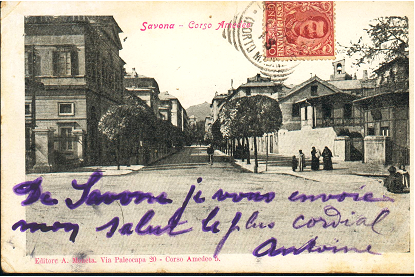 Savona - Corso Amedeo
De Savone je vous envoie
mon salut le plus cordial
Antoine
Editore A. Moneta. Via Paleocapa 20 - Corso Amedeo 5.